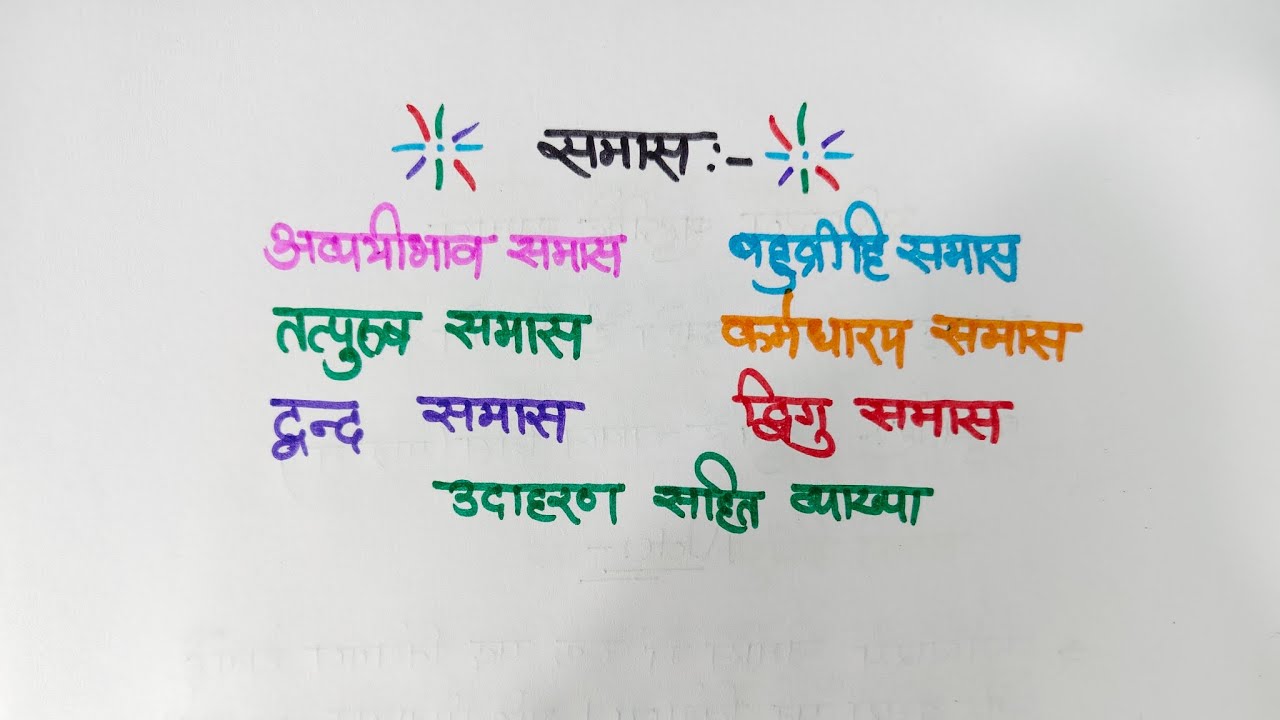 समास :-
अव्ययीभाव समास बहुव्रीहि समास
तत्पुरुष समास कर्मधारय समास
द्वन्द समास द्विगु समास
उदाहरण सहित व्याख्या